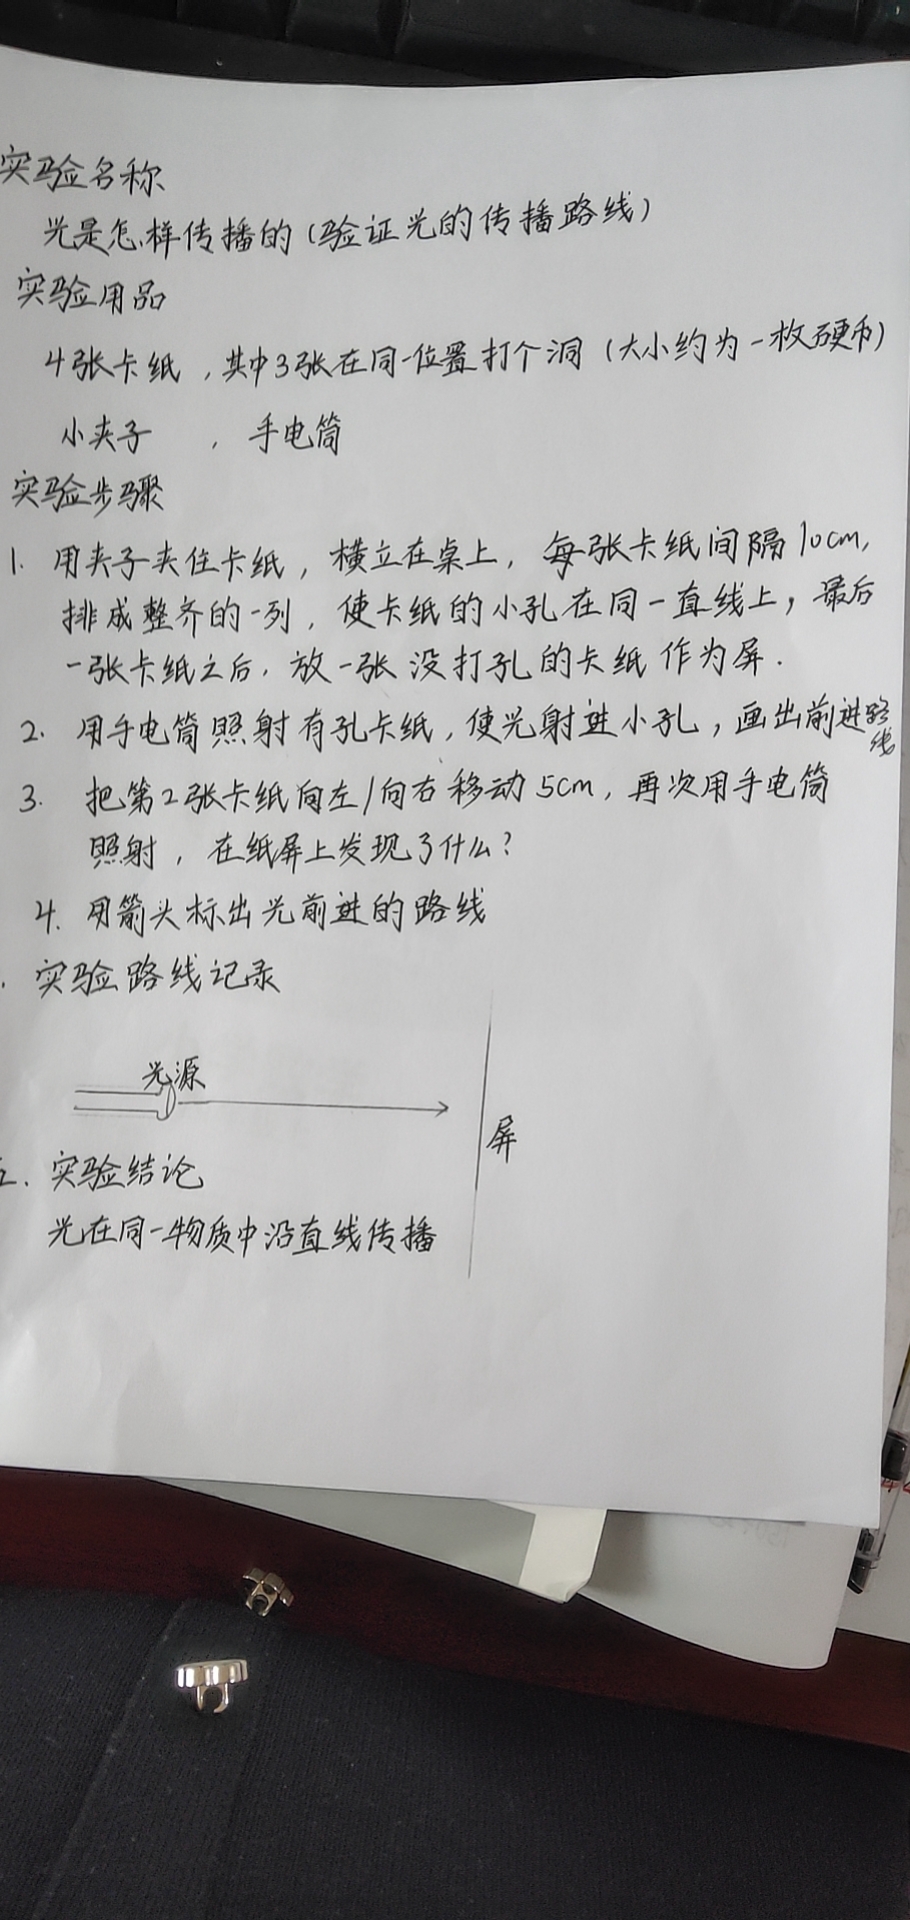 实验名称
光是怎样传播的(验证光的传播路线)
实验用品
4张卡纸,其中3张在同一位置打个洞(大小约为一枚硬币)
小夹子 ,手电筒
实验步骤
1. 用夹子夹住卡纸,横立在桌上,每张卡纸间隔10cm,
排成整齐的一列,使卡纸的小孔在同一直线上,最后
一张卡纸之后,放一张没打孔的卡纸作为屏.
2. 用手电筒照射有孔卡纸,使光射进小孔,画出前进路线
3. 把第2张卡纸向左/向右移动5cm,再次用手电筒
照射,在纸屏上发现了什么?
4. 用箭头标出光前进的路线
. 实验路线记录
光源
屏
. 实验结论
光在同一物质中沿直线传播